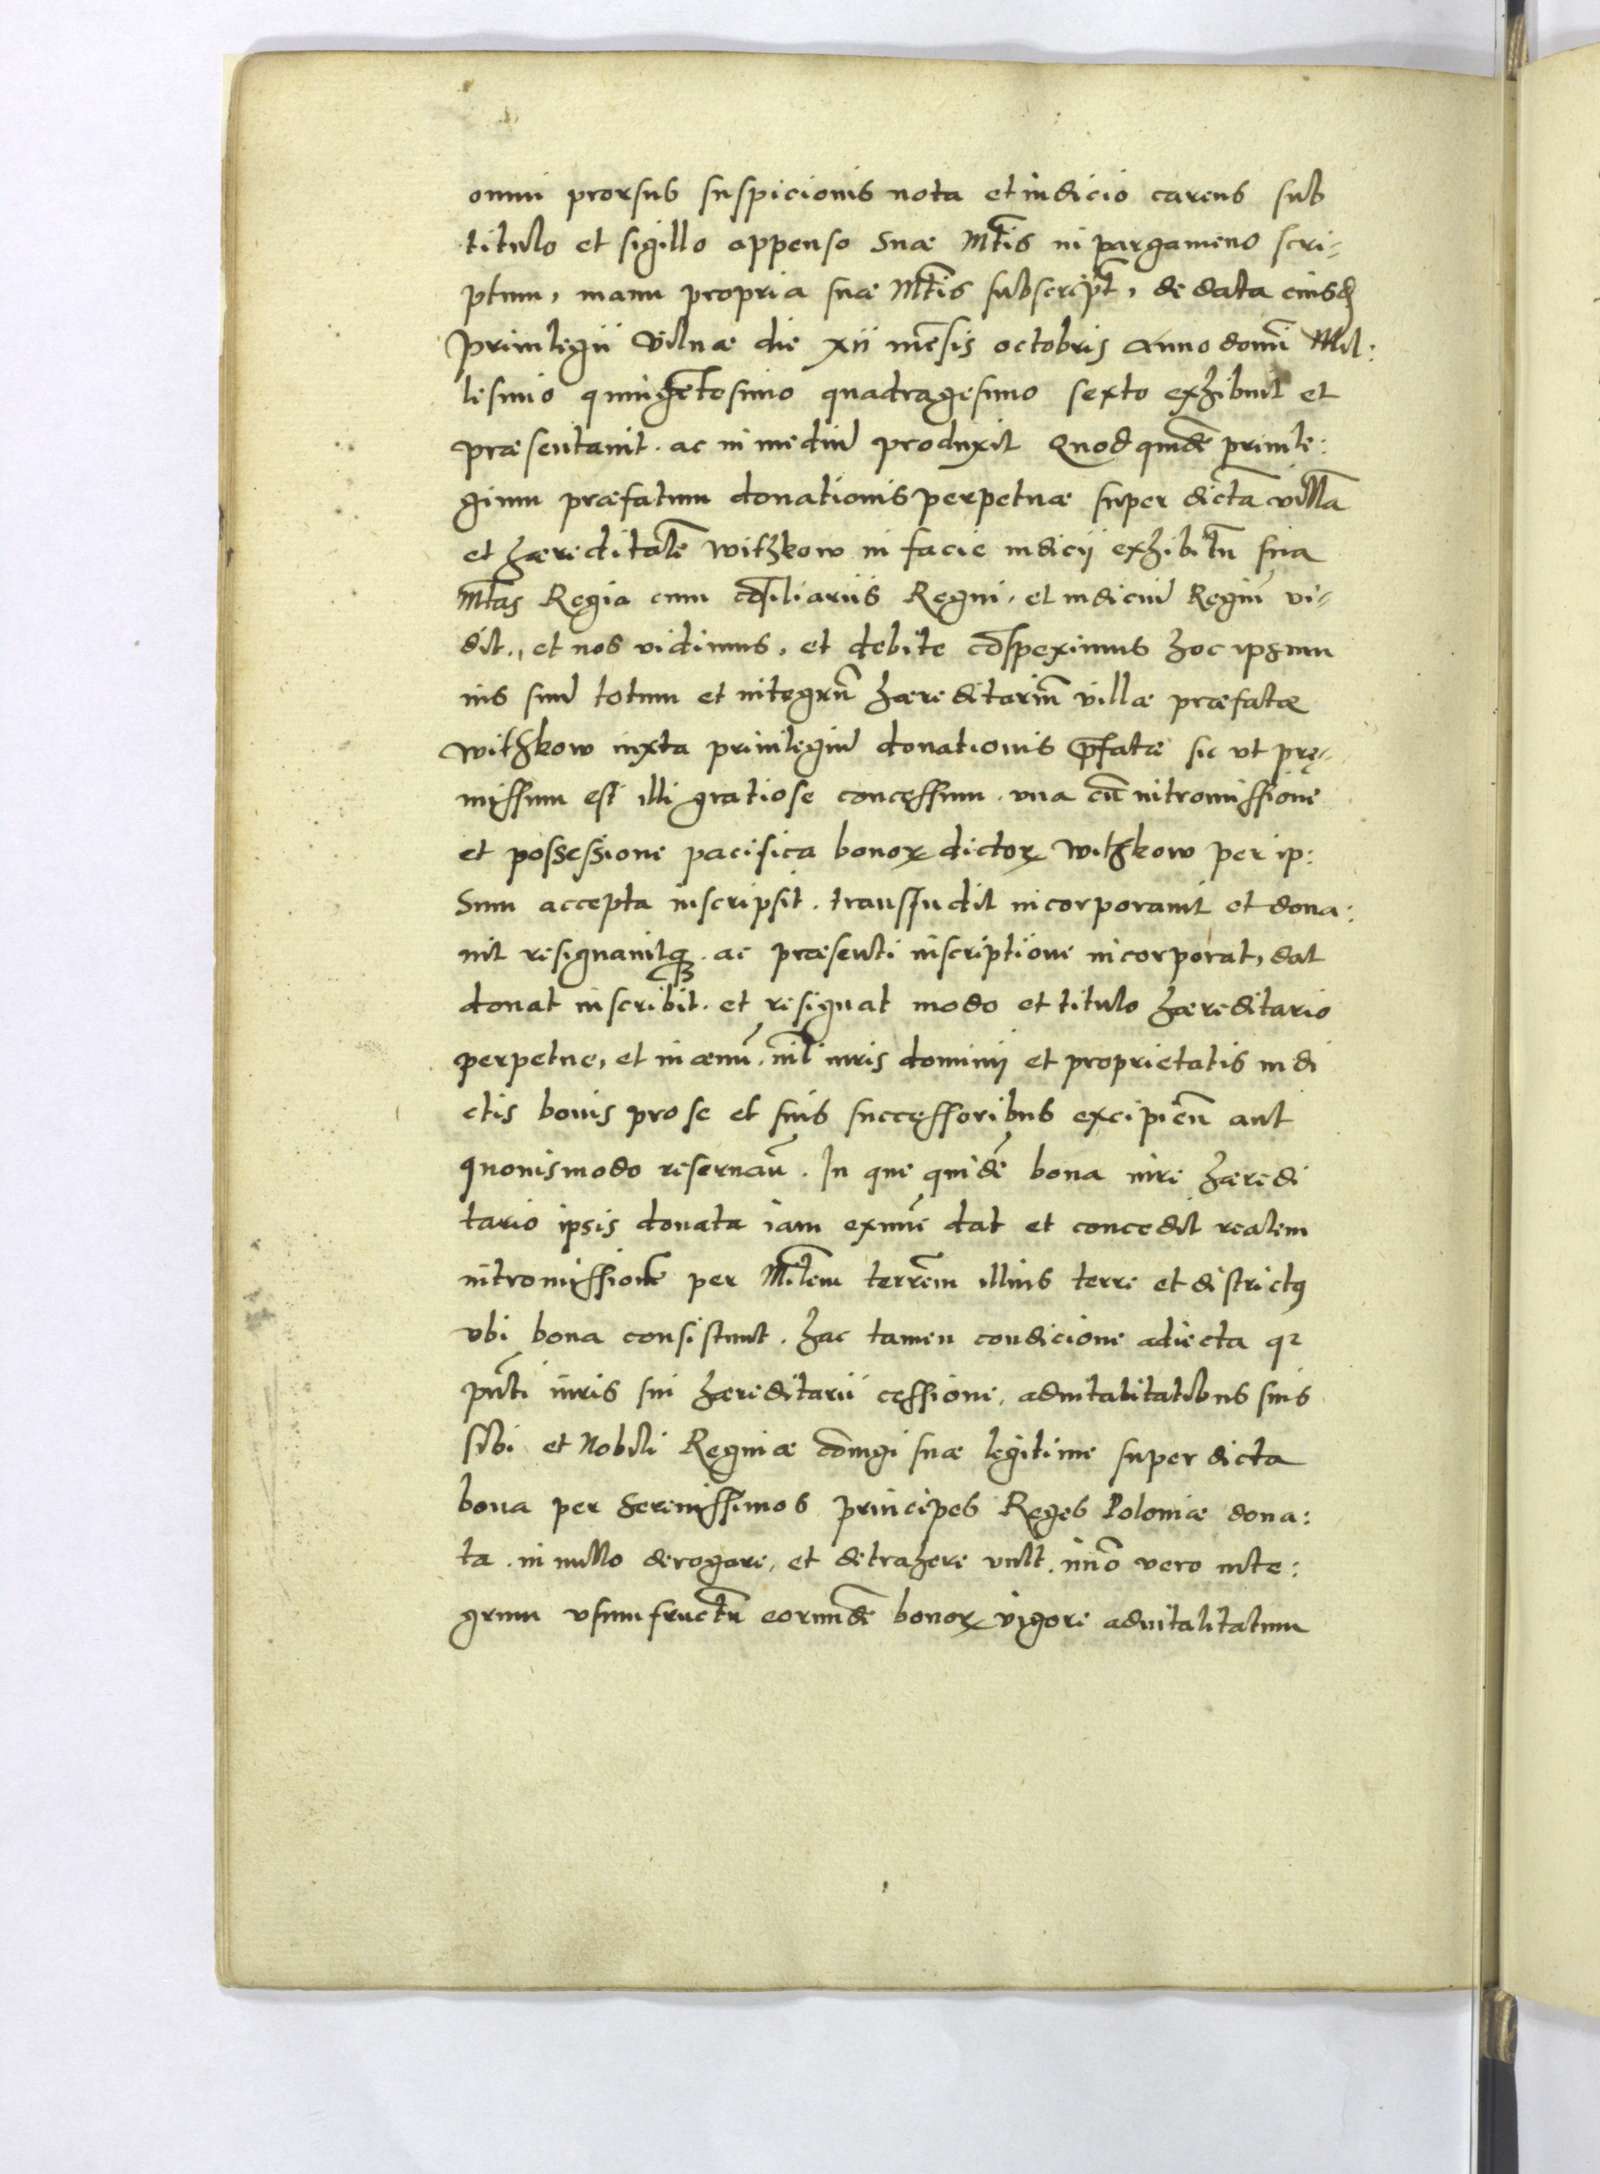 omni prorsus suspicionis nota et indicio carens sub
titulo et sigillo appenso Suæ Mt̃is in pargameno scri-
ptum, manu propria suæ Mt̃is subscript̃, de data eiusdẽ
Priuilegii Vilnæ die xii mẽsis octobris Anno domĩ Mil:
lesimo quingẽtesimo quadragesimo sexto exhibuit et
præsentauit. ac in mediũ produxit Quod quidẽ priuile:
gium præfatum donationis perpetuæ super dictã villã
et hæreditatẽ Withkow in facie iudicij exhibitũ sua
Mt̃as Regia cum cõsiliariis Regni. et iudiciũ Regiũ vi-
dit., et nos vidimus, et debite cõspeximus hoc ipsum
ius suũ totum et integrũ hæreditariũ villæ præfatæ
Withkow iuxta priuilegiũ donationis p̃fatæ sic vt prę-
missum est illi gratiose concessum. vna cũ intromissione
et possessione pacifica bonoꝝ dictoꝝ Withkow per ip:
sum accepta inscripsit. transfudit incorporauit et dona:
uit resignauitqꝫ. ac præsenti inscriptione incorporat, dat
donat inscribit. et resignat modo et titulo hæreditario
perpetue, et in æuũ. nil iuris dominij et proprietatis in di
ctis bonis pro se et suis successoribus excipieñ aut
quouismodo reseruañ. In que quidẽ bona iure hæredi
tario ipsis donata iam ex nũc dat et concedit realem
intromissionẽ per Mĩltem terrẽm illius terre et districtꝰ
vbi bona consistunt. hac tamen condicione adiecta qꝛ
pñti iuris sui hæreditarii cessione, aduitalitatibus suis
sibi et Nobili Reginæ cõiugi suæ legitime super dicta
bona per serenissimos principes Reges Poloniæ dona:
ta. in nullo derogare, et detrahere vult. im̃o vero inte:
grum vsumfructũ eorundẽ bonoꝝ vigore aduitalitatum